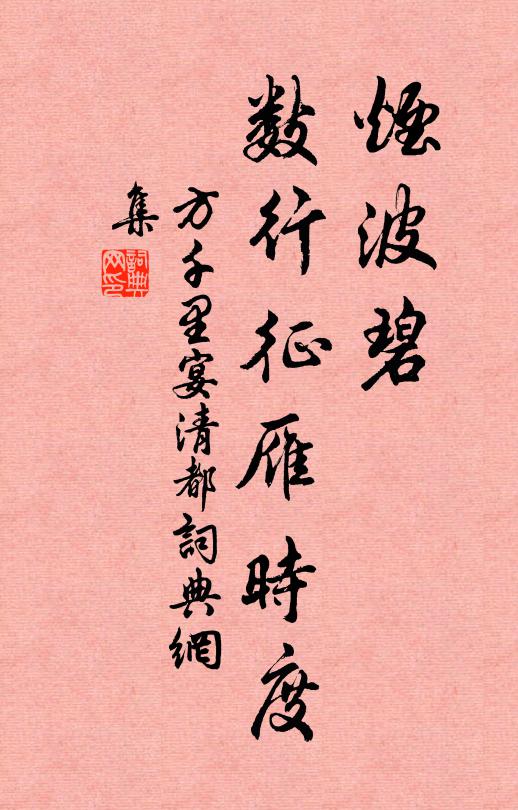 煙波碧
數行征雁時度
方千里宴清都詞典網
集
詞典网印